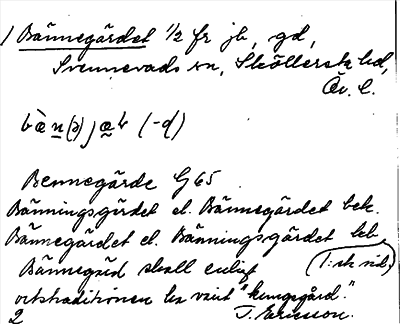 1 Bännegärdet 1/2 fr jb, gd,
Svennevads sn, Sköllersta hd,
Ör. l.
Bennegärde G 65
Bänningsgärdet el. Bännegärdet bek.
Bännegärdet el. Bänningsgärdet leb.
Bännegård skall enligt (T: sk nid.)
ortstraditionen ha varit "kungsgård."
2 T. Ericsson.